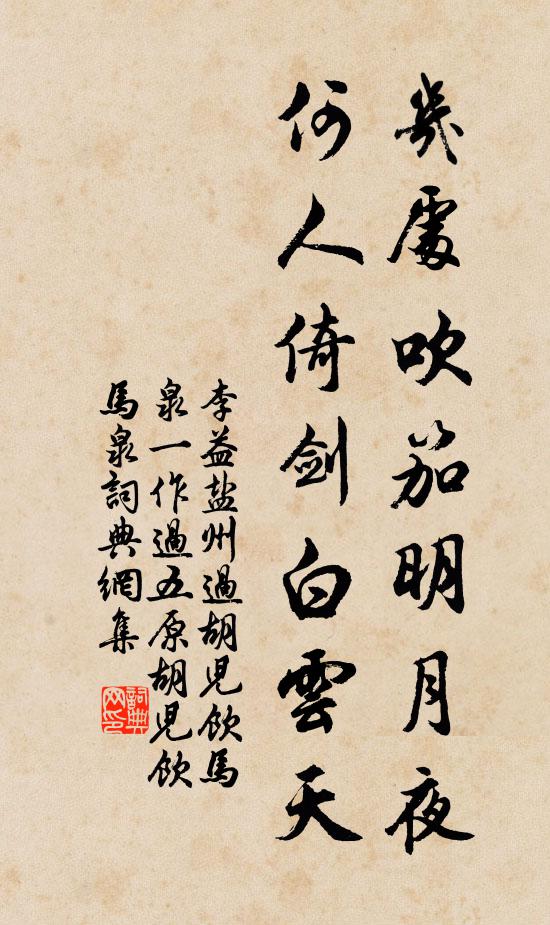 幾處吹笳明月夜
何人倚劍白雲天
李益盐州過胡兒飲馬
泉一作過五原胡兒飲
馬泉詞典網集
詞典
网印